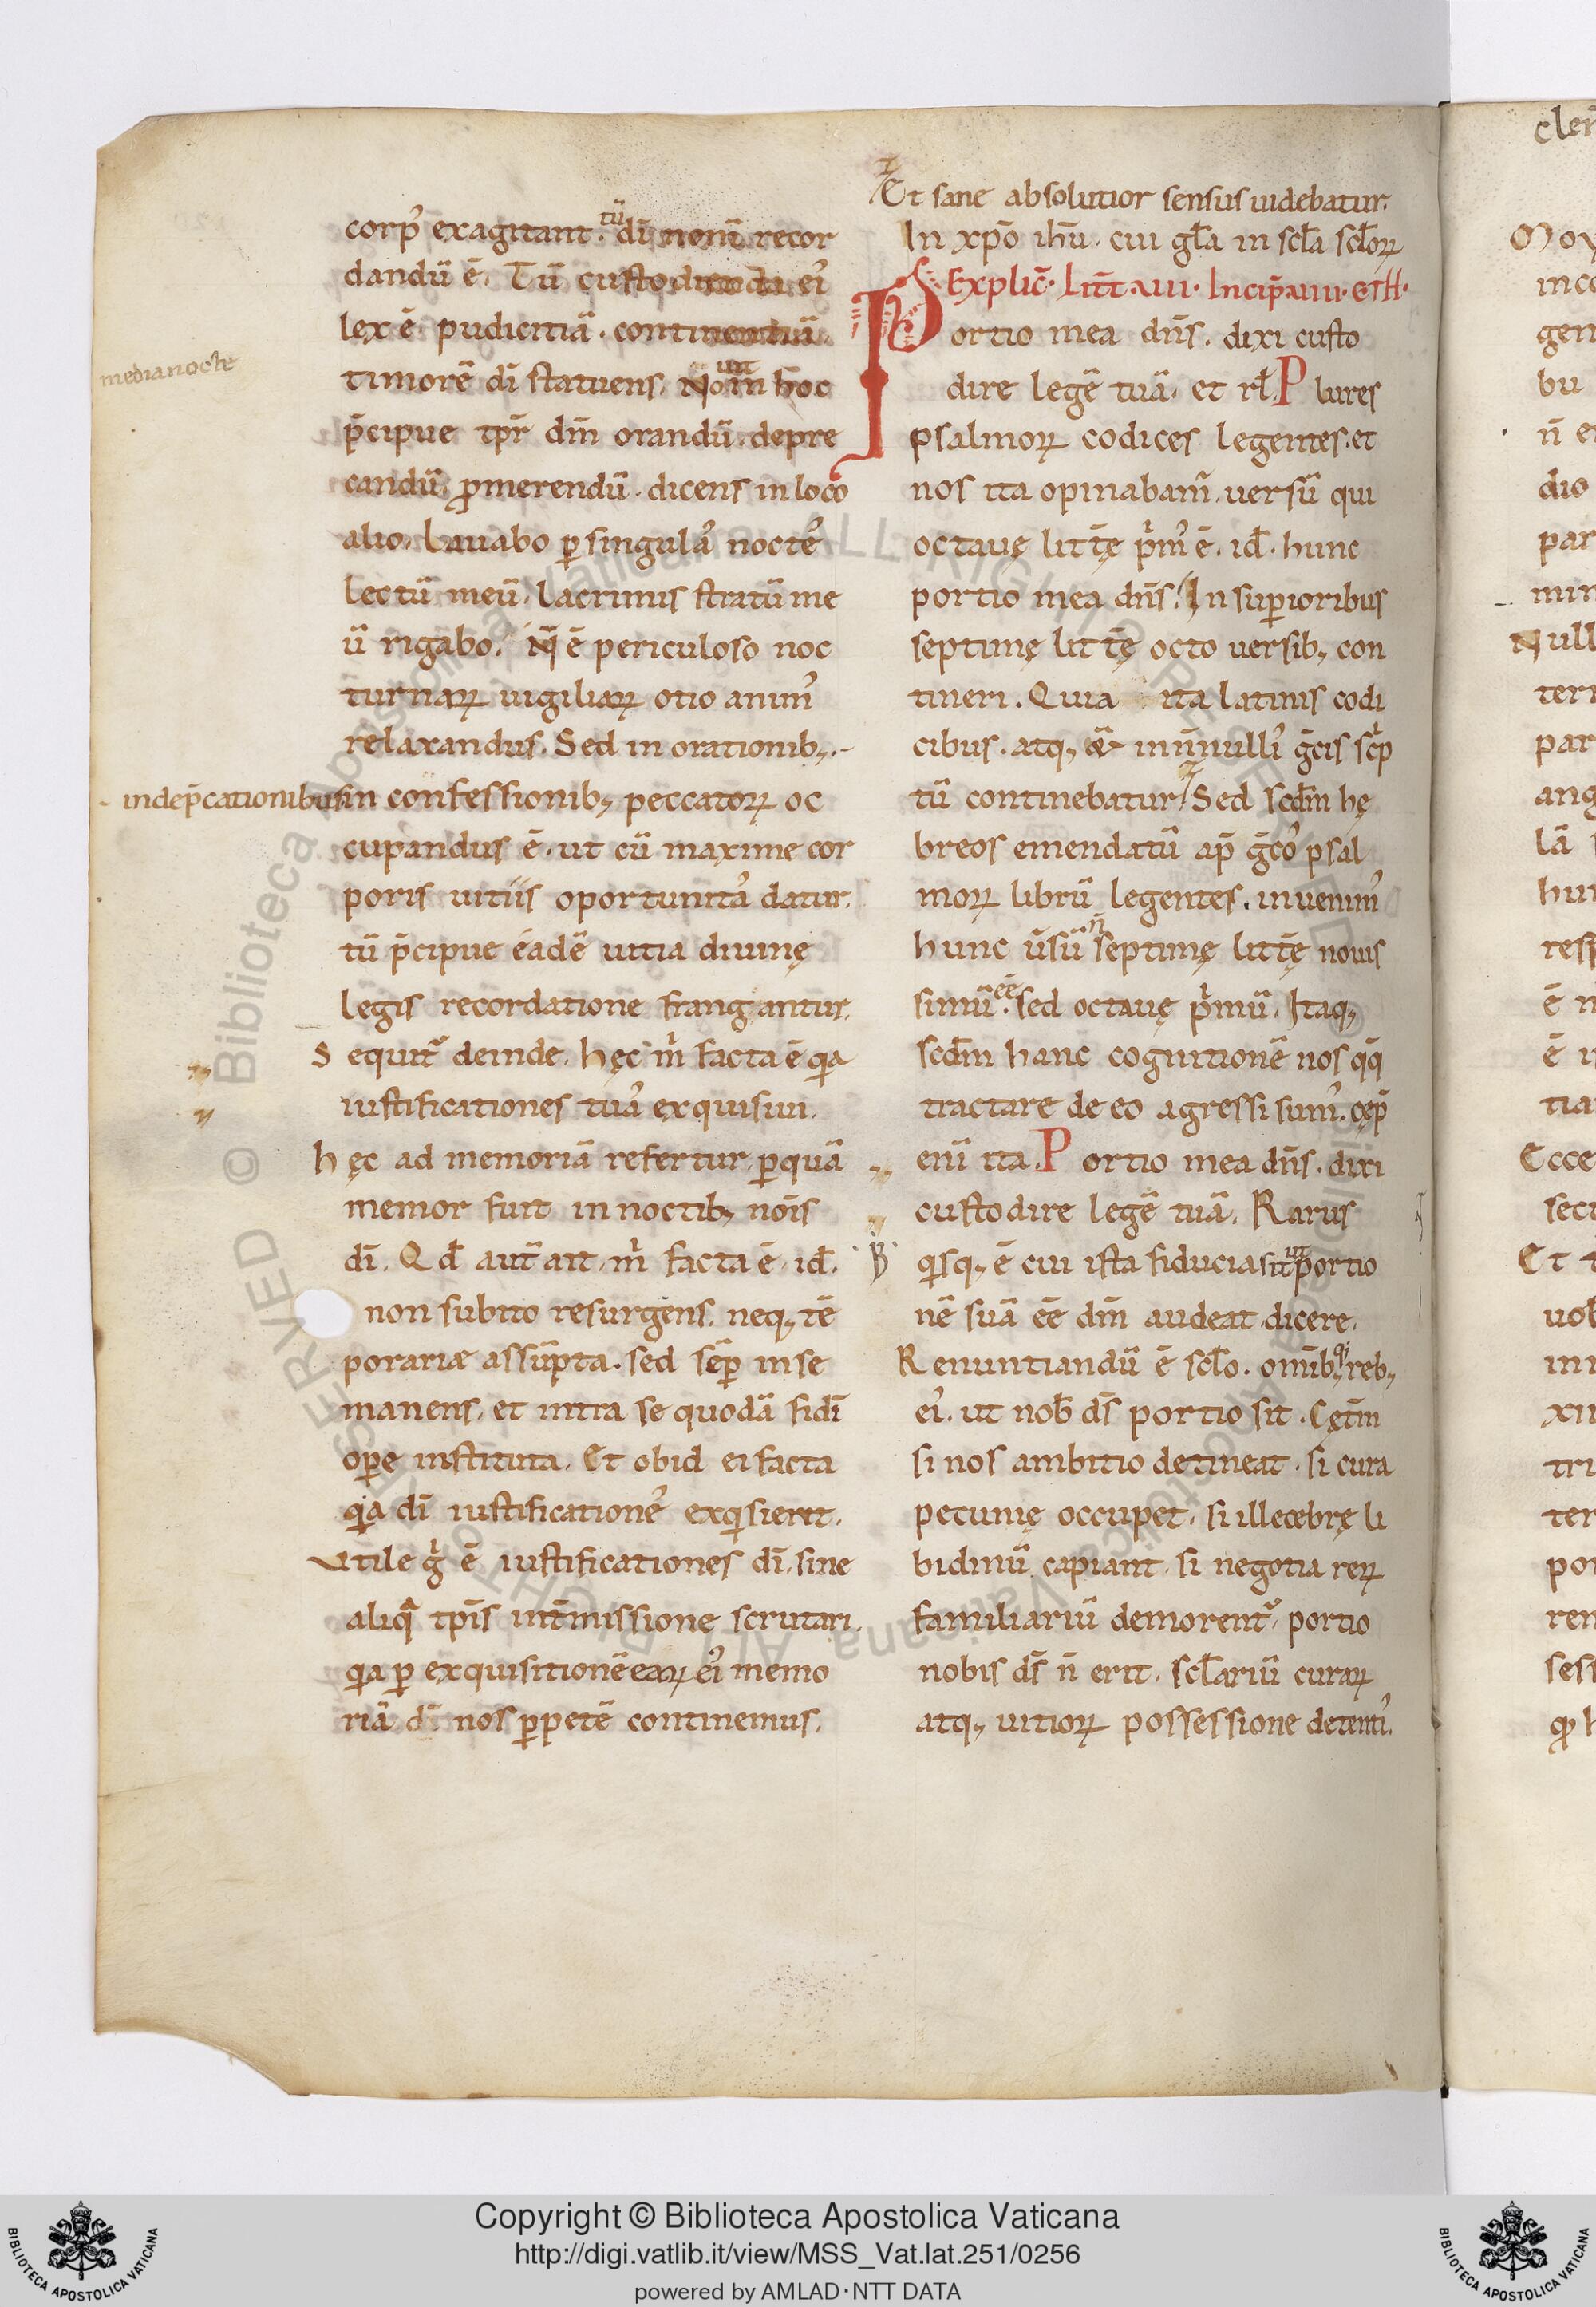 corp᾽ exagitant. tū dī nomī recor
dandū ē. Tū custodienda ei᾽
lex ē. pudicitiā. continentiā.
timorē dī statuens. Nōīn hoc
medianocte
p̄cipue tpr̄ dm̄ orandū. depre
candū. ꝓmerendū. dicens in loco
alio. Lauabo ꝑ singula᾽ nocte᾽
lectū meū. lacrimis stratū me
ū rigabo. N̄ ē periculoso noc
turnaꝝ uigiliaꝝ otio anim᾽
relaxandus. Sed in orationib;.
indep̄cationibus in confessionib; peccatoꝝ oc
cupandus ē. ut cū maxime cor
poris uitiis oportunita᾽ datur.
tū p̄cipue eadē uitia diuinę
legis recordatione frangantur.
Sequit᾽ deinde. hęc m̄ facta ē q̄a
iustificationes tua᾽ exquisiui.
hęc ad memoriā refertur. ꝑquā
memor fuit in noctib; noīs
dī. Qđ aut̄ ait. m̄ facta ē. iđ.
non subito resurgens. neq; tē
porariæ assūpta. sed sēꝑ in se
manens. et intra se quodā fidī
oꝑe instituta. Et ob id ei facta
q̄a dī iustificatione᾽ exq̄sierit.
Vtile g̊ ē iustificationes dī. sine
aliq̄ tpīs int̄missione scrutari.
q̄a ꝑ exquisitionē eaꝝ ei᾽ memo
riā dī nos ꝑpetē continemus.
Et sane absolutior sensus uidebatur.
In xp̄o ihū. cui gl̄a in scl̄a scl̄oꝝ
Explic̄. Litt̄. VII. Incip̄ VIII. ETH.
Portio mea dn̄s. dixi custo
dire legē tuā. et rl̄. Plures
psalmoꝝ codices legentes. et
nos ita opinabam᾽. uersū qui
octauę litt̄ę p̄m᾽ ē. iđ. hunc
portio mea dn̄s. In suꝑioribus
septimę litt̄ę octo uersib; con
tineri. Quia ita latinis codi
cibus. atq; & in n̄nulli᾽ ḡcis sc̄p
tū continebatur. Sed scđm hę
breos emendatū ap̄ ḡco᾽ psal
moꝝ librū legentes. inuenim᾽
hunc ūsū n̄ septimę litt̄ę nouis
simū ēē. sed octauę p̄mū. Itaq;
scđm hanc cognitionē nos q̄q̄
tractare de eo agressi sum᾽. cęp̄
enī ita. Portio mea dn̄s. dixi
custodire legē tuā. Rarus
q̄sq; ē cui ista fiducia sit ut portio
nē suā ēē dm̄ audeat dicere.
Renuntiandū ē scl̄o. omīb; q; reb;
ei᾽. ut nob̄ ds̄ portio sit. Cęt̄m
si nos ambitio detineat. si cura
pecunię occupet. si illecebrę li
bidinū capiant. si negotia reꝝ
familiariū demorent᾽. portio
nobis ds̄ n̄ erit. scl̄ariū curaꝝ
atq; uitioꝝ possessione detenti᾽.
Copyright © Biblioteca Apostolica Vaticana
http://digi.vatlib.it/view/MSS_Vat.lat.251/0256
powered by AMLAD·NTT DATA